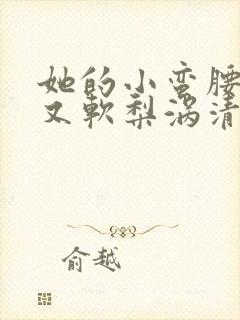 她的小蛮腰
又軟梨涡清
俞越